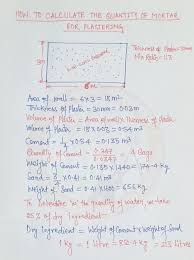 HOW TO CALCULATE THE QUANTITY OF MORTAR
FOR PLASTERING
Thickness of Plaster = 30mm
Mix Ratio = 1:3
3m
6m
Area of wall = 6×3 = 18m²
Thickness of Plaster = 30mm = 0.03m
Volume of Plaster = Area of wall × Thickness of Plaster
Volume of Plaster = 18×0.03 = 0.54m³
Cement =
Quantity of Cement = = 4 Bags
Weight of Cement = 0.135×1440 = 174.4 kg
Sand = ×0.54 = 0.41m³
Weight of Sand = 0.41×1600 = 656 kg
To calculate the quantity of water, we take
25% of dry Ingredient
Dry Ingredient = Weight of Cement + Weight of Sand
1 kg = 1 litre =